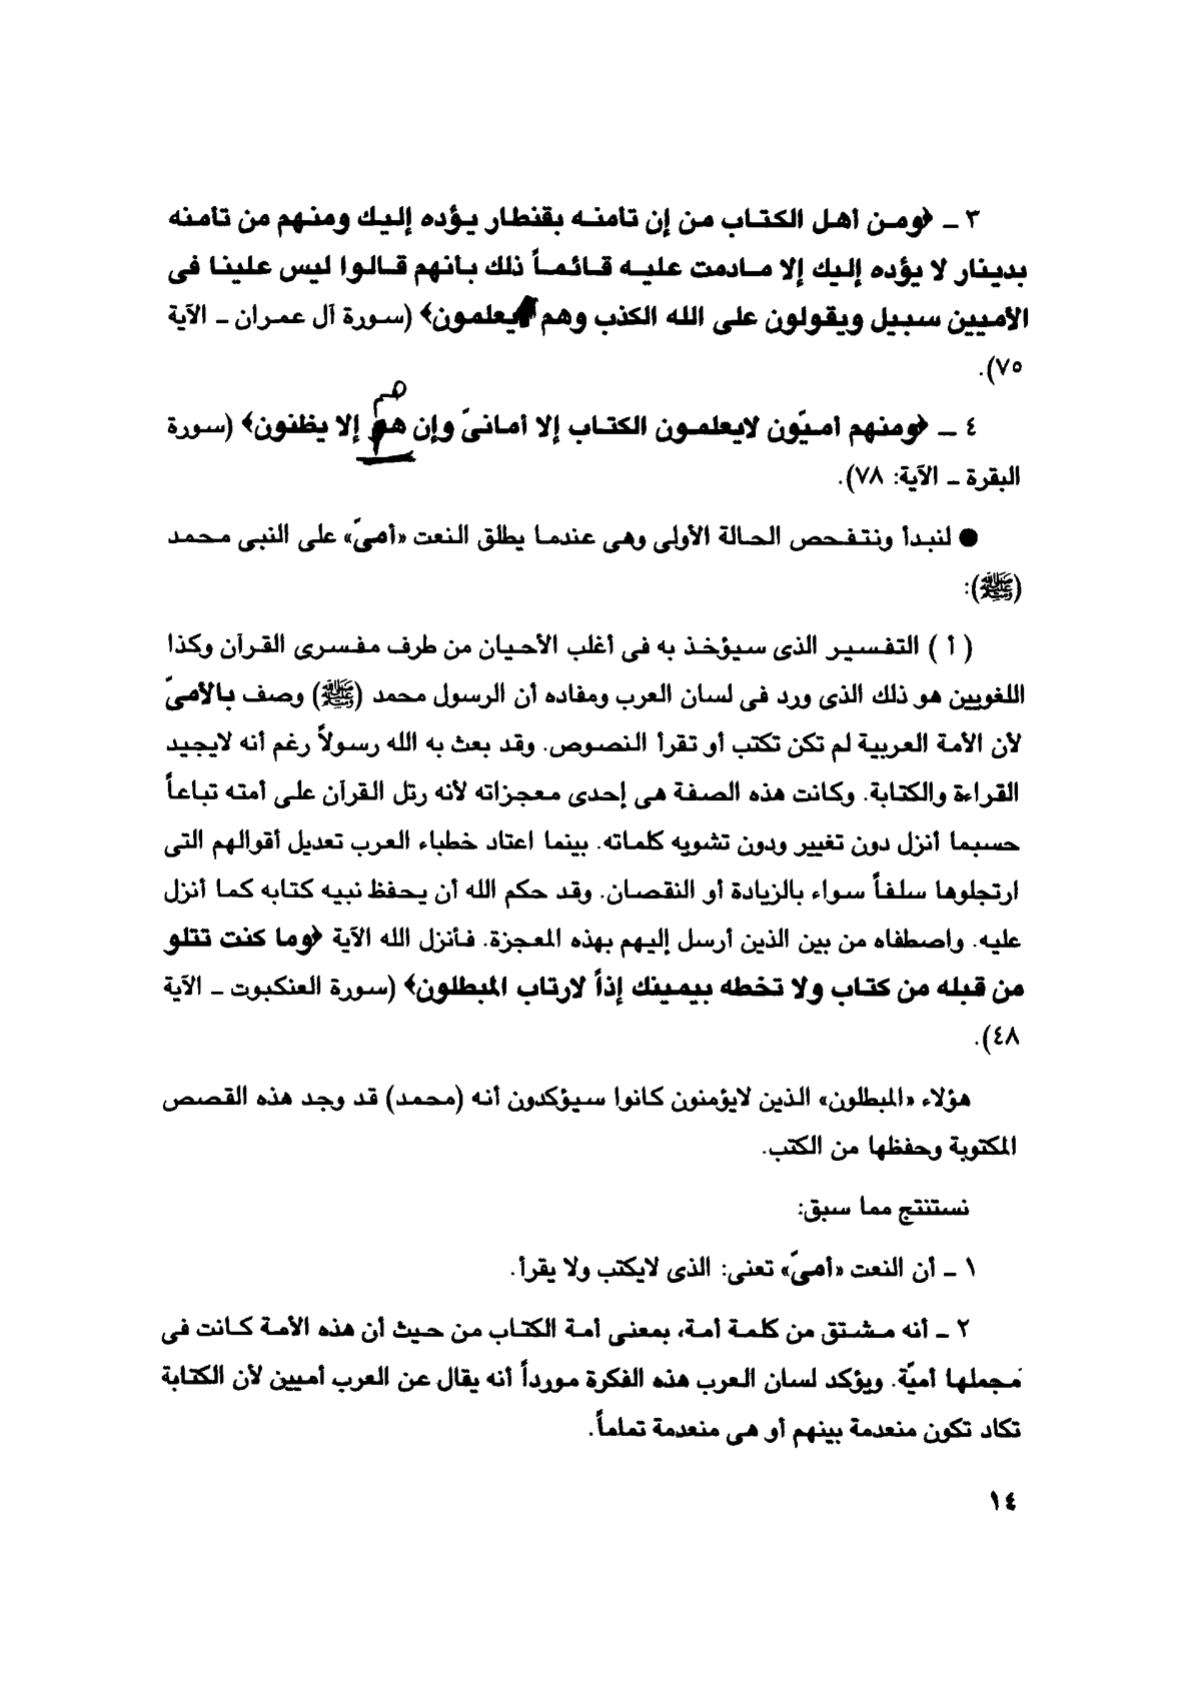 ٣ ـ ﴿ومن أهل الكتاب من إن تأمنه بقنطار يؤده إليك ومنهم من تأمنه
بدينار لا يؤده إليك إلا مادمت عليه قائماً ذلك بأنهم قالوا ليس علينا فى
الأميين سبيل ويقولون على الله الكذب وهم يعلمون﴾ (سورة آل عمران ـ الآية
٧٥).
هم
٤ ـ ﴿ومنهم أميّون لايعلمون الكتاب إلا أمانىّ وإن هم إلا يظنون﴾ (سورة
البقرة ـ الآية: ٧٨).
● لنبدأ ونتفحص الحالة الأولى وهى عندما يطلق النعت «أمىّ» على النبى محمد
(ﷺ):
( أ ) التفسير الذى سيؤخذ به فى أغلب الأحيان من طرف مفسرى القرآن وكذا
اللغويين هو ذلك الذى ورد فى لسان العرب ومفاده أن الرسول محمد (ﷺ) وصف بالأمىّ
لأن الأمة العربية لم تكن تكتب أو تقرأ النصوص. وقد بعث به الله رسولاً رغم أنه لايجيد
القراءة والكتابة. وكانت هذه الصفة هى إحدى معجزاته لأنه رتل القرآن على أمته تباعاً
حسبما أنزل دون تغيير ودون تشويه كلماته. بينما اعتاد خطباء العرب تعديل أقوالهم التى
ارتجلوها سلفاً سواء بالزيادة أو النقصان. وقد حكم الله أن يحفظ نبيه كتابه كما أنزل
عليه. واصطفاه من بين الذين أرسل إليهم بهذه المعجزة. فأنزل الله الآية ﴿وما كنت تتلو
من قبله من كتاب ولا تخطه بيمينك إذاً لارتاب المبطلون﴾ (سورة العنكبوت ـ الآية
٤٨).
هؤلاء «المبطلون» الذين لايؤمنون كانوا سيؤكدون أنه (محمد) قد وجد هذه القصص
المكتوبة وحفظها من الكتب.
نستنتج مما سبق:
١ ـ أن النعت «أمىّ» تعنى: الذى لايكتب ولا يقرأ.
٢ ـ أنه مشتق من كلمة أمة، بمعنى أمة الكتاب من حيث أن هذه الأمة كانت فى
مجملها أميّة. ويؤكد لسان العرب هذه الفكرة مورداً أنه يقال عن العرب أميين لأن الكتابة
تكاد تكون منعدمة بينهم أو هى منعدمة تماماً.
١٤